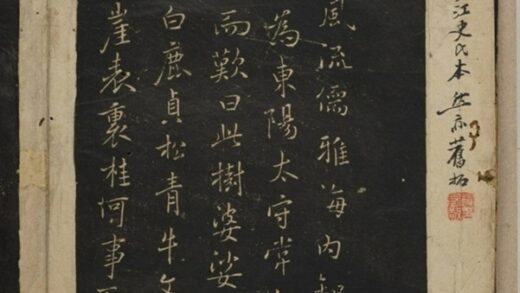 江史氏本然亦舊拓
風流儒雅海内知
為東陽太守常
而歎曰此樹婆娑
白鹿貞松青牛文
崖表裏桂何事